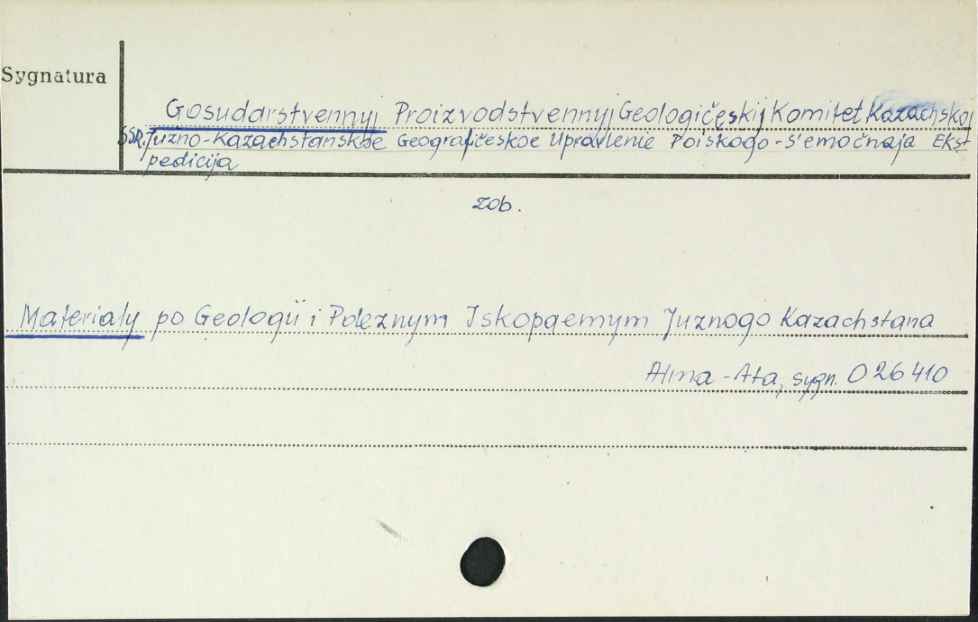 Sygnatura
Gosudarstvennyj Proizvodstvennyj Geologičeskij Komitet Kazachskoj
SSR. Juzno-Kazachstanskoe Geografičeskoe Upravlenie Poiskogo-S'emočnaja Eks-
pedicija
zob.
Materiały po Geologii i Poleznym Iskopaemym Juznogo Kazachstana
Ałma-Ata, sygn. 026410